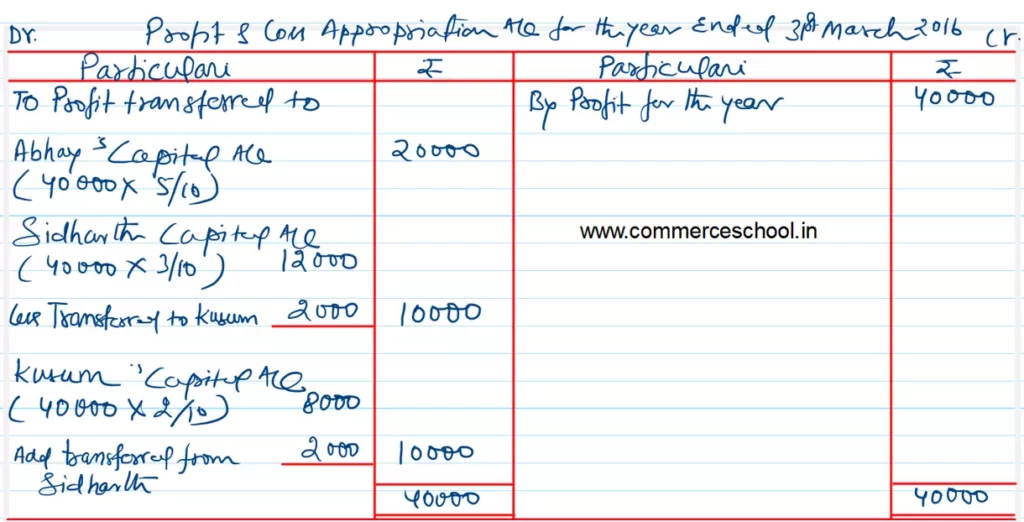 Dr. Profit & Loss Appropriation A/c for the year Ended 31st March 2016 Cr.
Particulars ₹ Particulars ₹
To Profit transferred to By Profit for the year 40000
Abhay's Capital A/c 20000
(40000 X 5/10)
Sidharth Capital A/c
(40000 X 3/10) 12000
www.commerceschool.in
Less Transferred to Kusum 2000 10000
Kusum's Capital A/c
(40000 X 2/10) 8000
Add transferred from 2000 10000
Sidharth
40000 40000